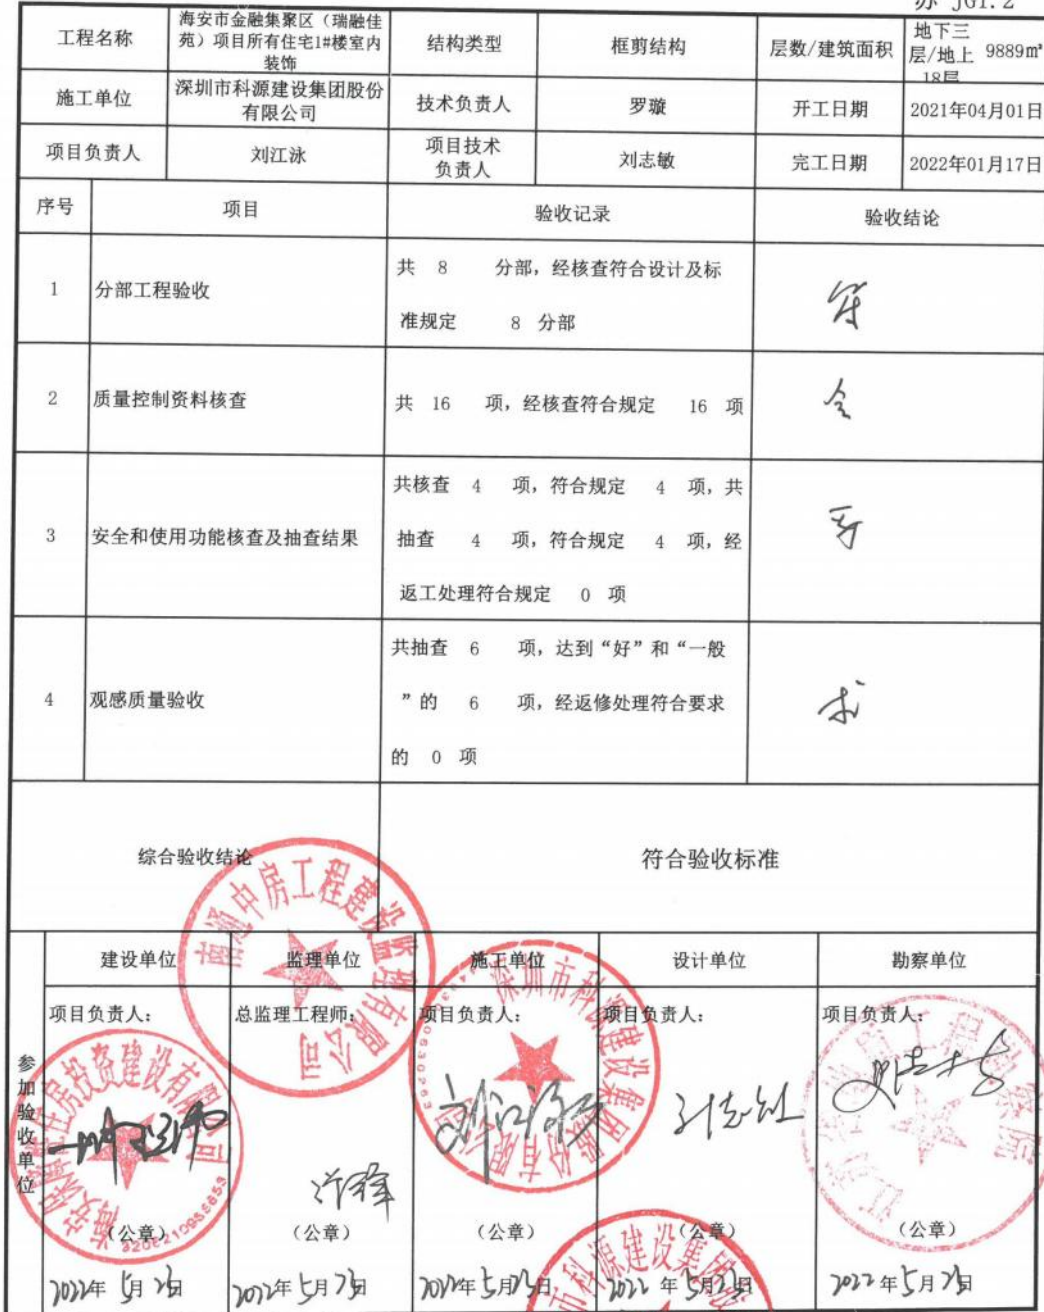 苏 JG1.2
工程名称
海安市金融集聚区（瑞融佳
苑）项目所有住宅1#楼室内
装饰
结构类型
框剪结构
层数/建筑面积
地下三
层/地上
18层
9889㎡
施工单位
深圳市科源建设集团股份
有限公司
技术负责人
罗璇
开工日期
2021年04月01日
项目负责人
刘江泳
项目技术
负责人
刘志敏
完工日期
2022年01月17日
序号
项目
验收记录
验收结论
1
分部工程验收
共 8 分部，经核查符合设计及标
准规定 8 分部
符
2
质量控制资料核查
共 16 项，经核查符合规定 16 项
合
3
安全和使用功能核查及抽查结果
共核查 4 项，符合规定 4 项，共
抽查 4 项，符合规定 4 项，经
返工处理符合规定 0 项
要
4
观感质量验收
共抽查 6 项，达到“好”和“一般
”的 6 项，经返修处理符合要求
的 0 项
求
综合验收结论
符合验收标准
参加验收单位
建设单位
监理单位
施工单位
设计单位
勘察单位
项目负责人：
总监理工程师：
项目负责人：
项目负责人：
项目负责人：
南通中房工程建设监理有限公司
深圳市科源建设集团股份有限公司
刘江泳
（公章）
（公章）
（公章）
（公章）
（公章）
2022年5月23日
2022年5月23日
2022年5月23日
2022年5月23日
2022年5月23日
市科源建设集团股